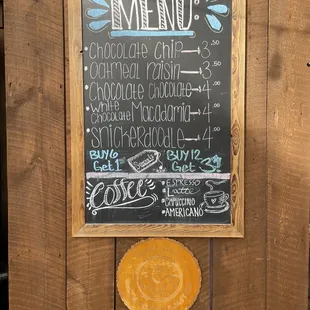 MENU
Chocolate Chip — 3.50
Oatmeal raisin — 3.50
Chocolate chocolate — 4
White Chocolate Macadamia — 4
Snickerdoodle — 4
BUY 6 BUY 12
Get 1 Get 3!
Coffee
ESPRESSO
Latte
CAPPUCCINO
AMERICANO